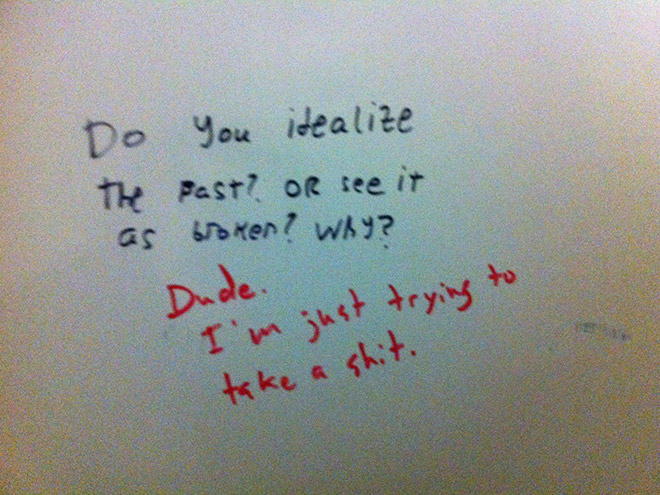 Do you idealize
the past? OR see it
as broken? Why?
Dude.
I'm just trying to
take a shit.